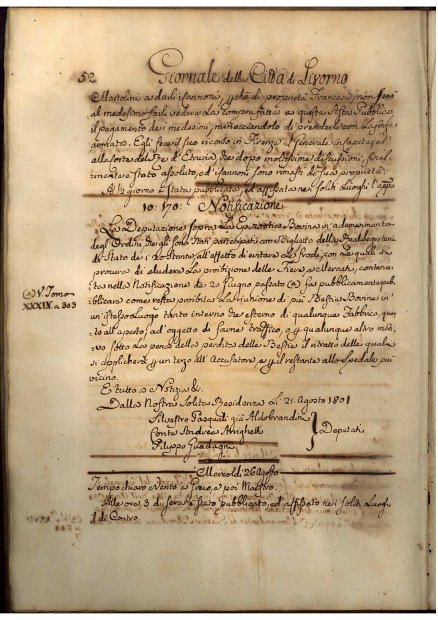 52 Giornale della Città di Livorno
Martolini a darli i Cannoni, perchè di proprietà Francese, non
al medesimo farli vedere la compra fatta a questa Pubblica
il pagamento dei medesimi, minacciandolo di prenderli con la forza
armata. Egli fece il suo ricorso in Firenze al Generale in Capite, ed
alla Corte del Re d'Etruria, che dopo moltissime discussioni, final-
mente è stato assoluto, ed i Cannoni sono rimasti di sua proprietà.
A ½ giorno è stata pubblicata, ed affissata nei soliti Luoghi l'appo
Notificazione
La Deputazione sopra La Epizootia Bovina in adempimento
degl'Ordini che gli sono stati partecipati con Biglietto della Real Segreteria
di Stato de i 20 stante all'effetto di evitare Le frodi, con Le quali si
procura di eludere La proibizione delle Fiere, e Mercati, contenu-
ta nella Notificazione de 20 Giugno passato @ fa pubblicamente pub-
blicare come resta proibita La riunione di più Bestie Bovine in
un istesso Luogo tanto interno che esterno di qualunque Fabbrico, que-
sto all'aposto, ad oggetto di farne traffico, o per qualunque altro moti-
vo sotto La pena della perdita delle Bestie il ritratto delle quali
si applicherà per un terzo all'Accusatore, e per il restante allo Spedale più
vicino.
@ V. Tomo
XXXIX a 303
E tutto a Notizia &c.
Dalla Nostra Solita Residenza Li 21. Agosto 1801
Silvestro Pasquali già Aldobrandini
Conte Andrea
Filippo Guadagni
Deputati
Mercoldì 26 Agosto
Tempo chiaro Vento a Greco, e poi Maestro.
Alle ore 3 di sera è stato pubblicato, ed affissato nei soliti Luoghi
il di Contro.